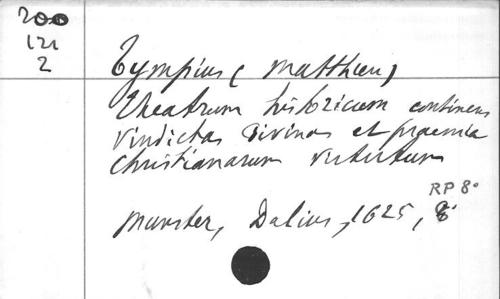 200
121
2
Tympius ( Matthieu)
Theatrum historicum continens
vindictas divinas et praemia
christianarum virtutum
RP 8°
Munster, Dalius, 1625, 8°